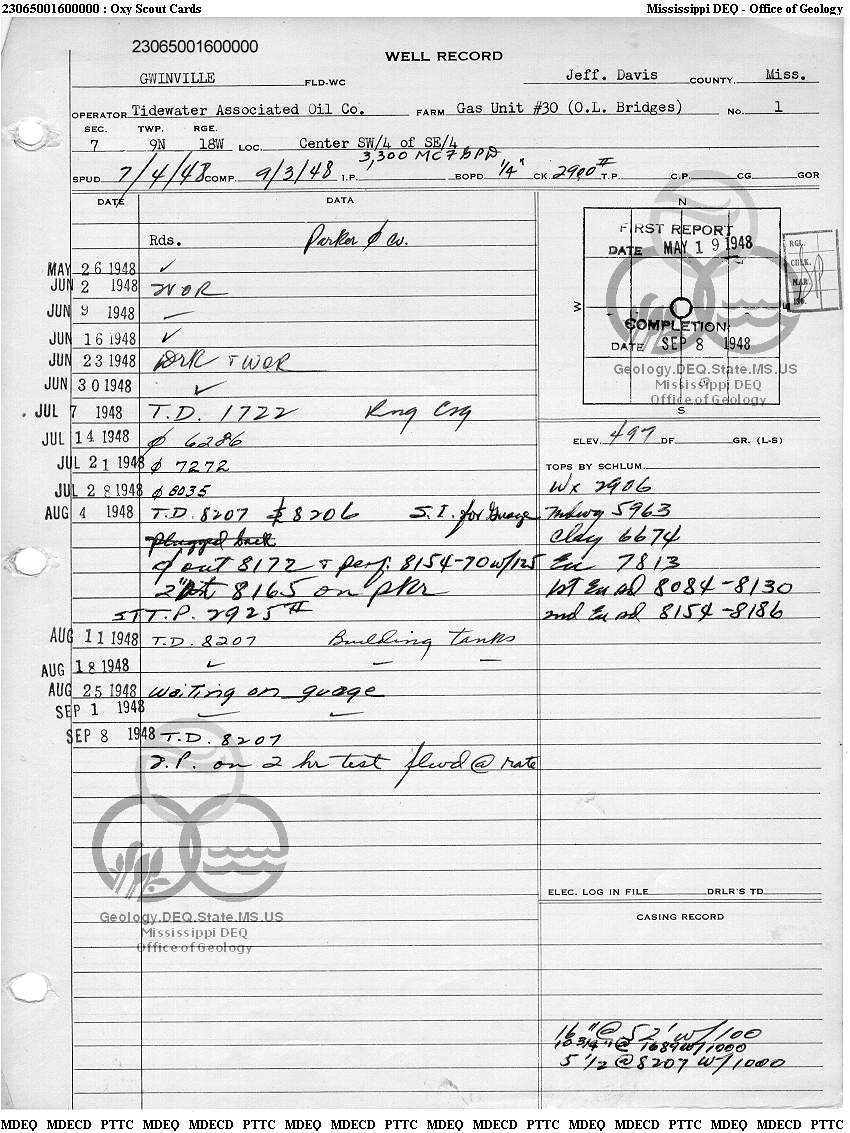 23065001600000 : Oxy Scout Cards
Mississippi DEQ - Office of Geology
23065001600000
WELL RECORD
GWINVILLE FLD-WC Jeff. Davis COUNTY, Miss.
OPERATOR Tidewater Associated Oil Co. FARM Gas Unit #30 (O.L. Bridges) No. 1
SEC. TWP. RGE.
7 9N 18W LOC. Center SW/4 of SE/4
3,300 MCF DPD
SPUD 7/4/48 COMP. 9/3/48 I.P. BOPD 1/4" CK. 2900# T.P. C.P. CG. GOR
DATE DATA
Rds. Parker
MAY 26 1948 ✓
JUN 2 1948 WOR
JUN 9 1948 —
JUN 16 1948 ✓
JUN 23 1948 Drk + WOR
JUN 30 1948 ✓
JUL 7 1948 T.D. 1722 Rng Csg
JUL 14 1948 ϕ 6286
JUL 21 1948 ϕ 7272
JUL 28 1948 ϕ 8035
AUG 4 1948 T.D. 8207 8206 S.I. for Guage
plugged back
out 8172 + perf. 8154-70 w/125
2" 8165 on pkr
SI T.P. 2925#
AUG 11 1948 T.D. 8207 Building tanks
AUG 18 1948 ✓ — —
AUG 25 1948 waiting on guage
SEP 1 1948
SEP 8 1948 T.D. 8207
I.P. on 2 hr test flwd @ rate
N
W
S
FIRST REPORT
DATE MAY 19 1948
COMPLETION:
DATE SEP 8 1948
RGL.
CHLK.
MAR.
Geology.DEQ.State.MS.US
Mississippi DEQ
Office of Geology
ELEV. 497 DF GR. (L-S)
TOPS BY SCHLUM.
Wx 2906
Mdwy 5963
Clay 6674
Eu 7813
1st Eu sd 8084-8130
2nd Eu sd 8154-8186
ELEC. LOG IN FILE DRLR'S TD
CASING RECORD
16" @ 52' w/100
10 3/4" @ 1689 w/1000
5 1/2 @ 8207 w/1000
Geology.DEQ.State.MS.US
Mississippi DEQ
Office of Geology
MDEQ MDECD PTTC MDEQ MDECD PTTC MDEQ MDECD PTTC MDEQ MDECD PTTC MDEQ MDECD PTTC MDEQ MDECD PTTC